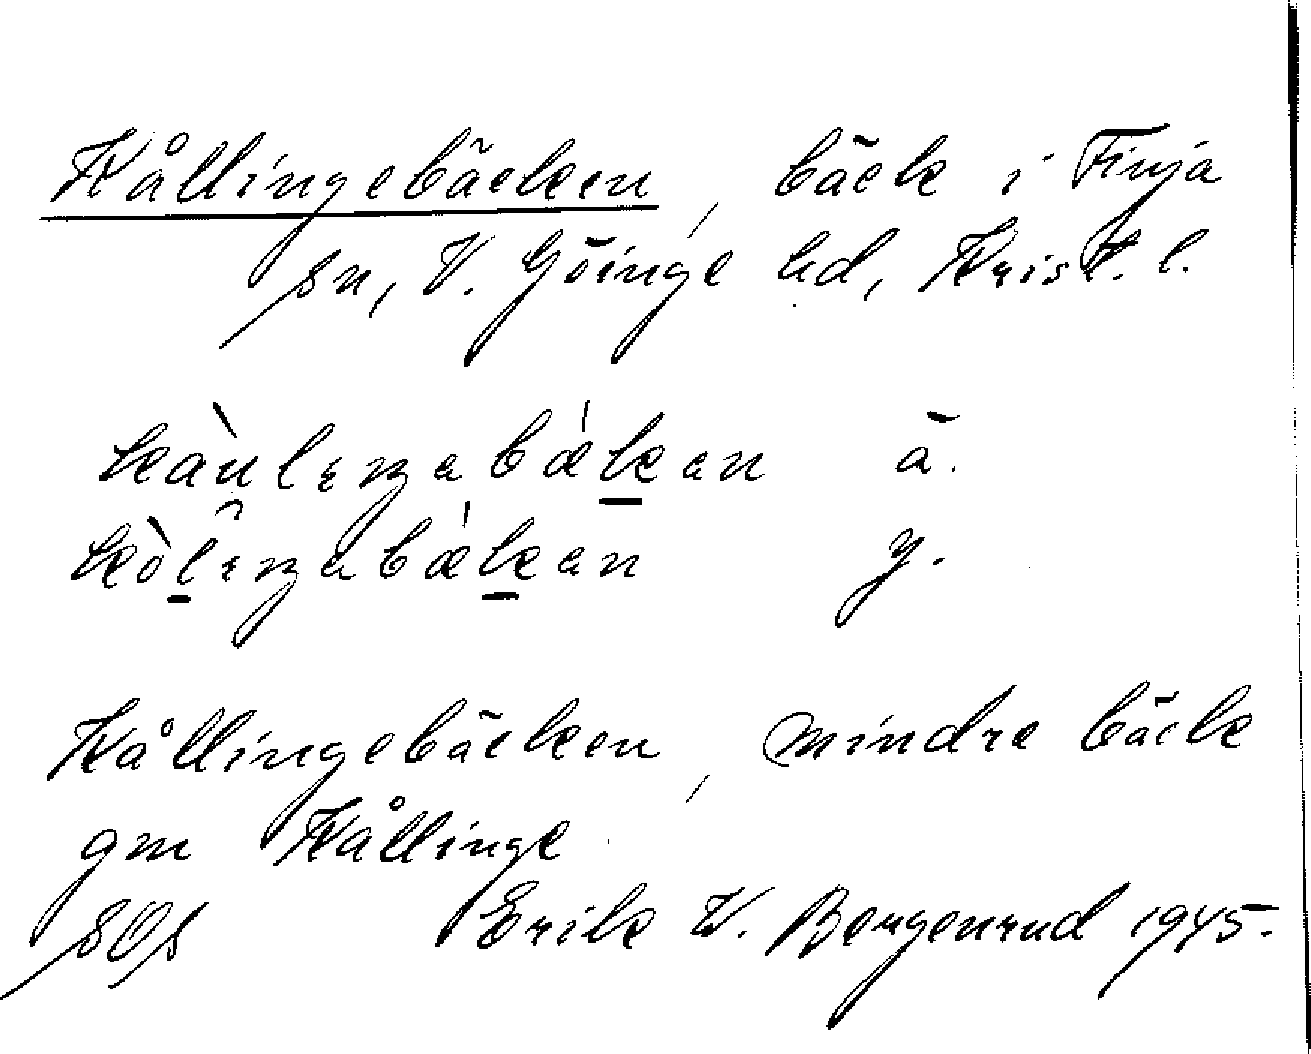 Kållingebäcken, bäck i Finja
sn, V. Göinge hd, Krist. l.
kàulıŋabǽkan ä.
kòlıŋabǽkan y.
Kållingebäcken, mindre bäck
gm Kållinge
SOS Erik W. Bergenrud 1945.